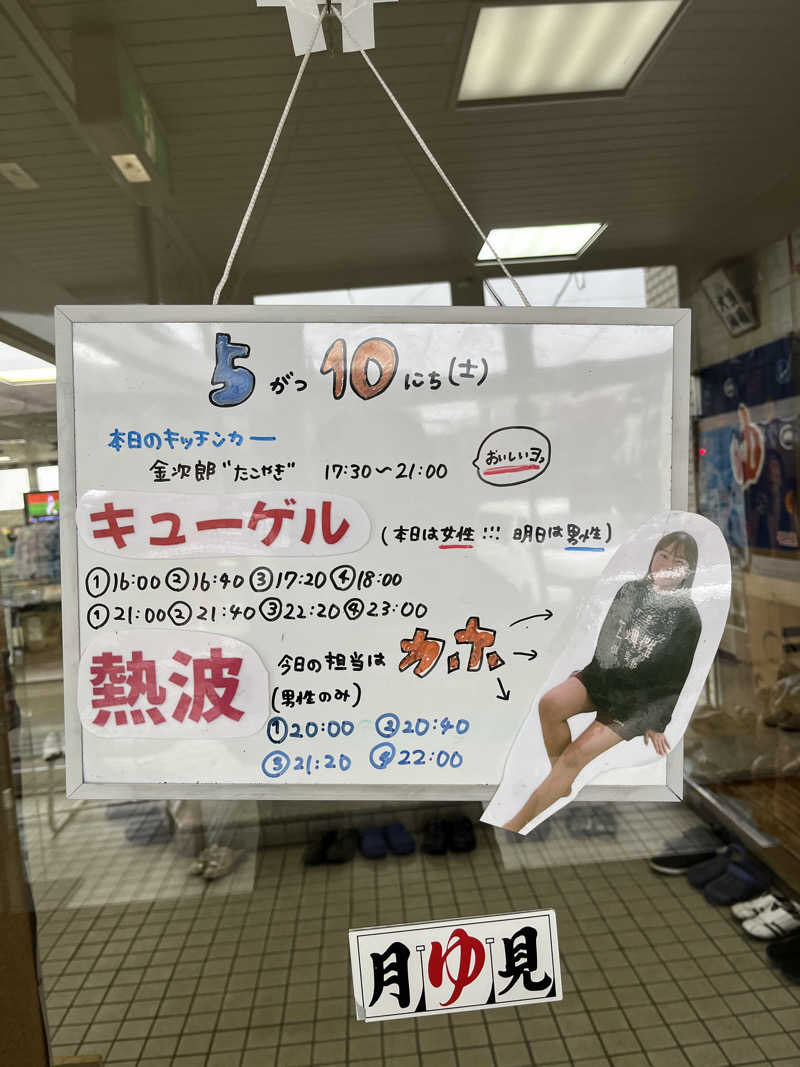 5がつ10にち(土)
本日のキッチンカー
金次郎"たこやき" 17:30～21:00
おいしいヨ♪
キューゲル (本日は女性!!! 明日は男性)
①16:00②16:40③17:20④18:00
①21:00②21:40③22:20④23:00
熱波 今日の担当は カ.ホ.
(男性のみ)
①20:00 ②20:40
③21:20 ④22:00
月ゆ見
ゆ